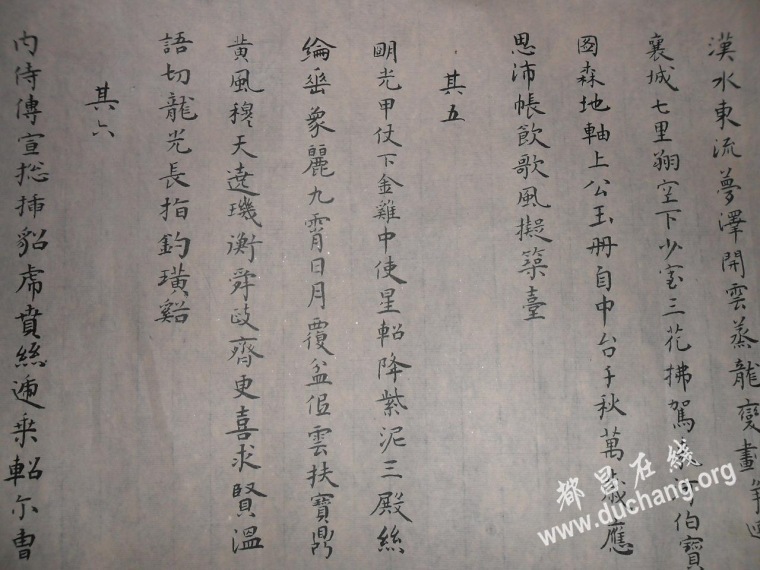 漢水東流夢澤開雲蒸龍變畫
襄城七里翔空下少室三花拂駕 伯寶
圖森地軸上公玉冊自中台千秋萬歲應
思沛帳飲歌風擬築臺
其五
明光甲仗下金雞中使星軺降紫泥三殿絲
綸垂象麗九霄日月覆盆低雲扶寶鼎
黃風穆天遶璣衡舜 齊更喜求賢溫
語切龍光長指釣璜谿
其六
內侍傳宣揔插貂虎賁絲 乘軺尔曹
都昌在线
www.duchang.org